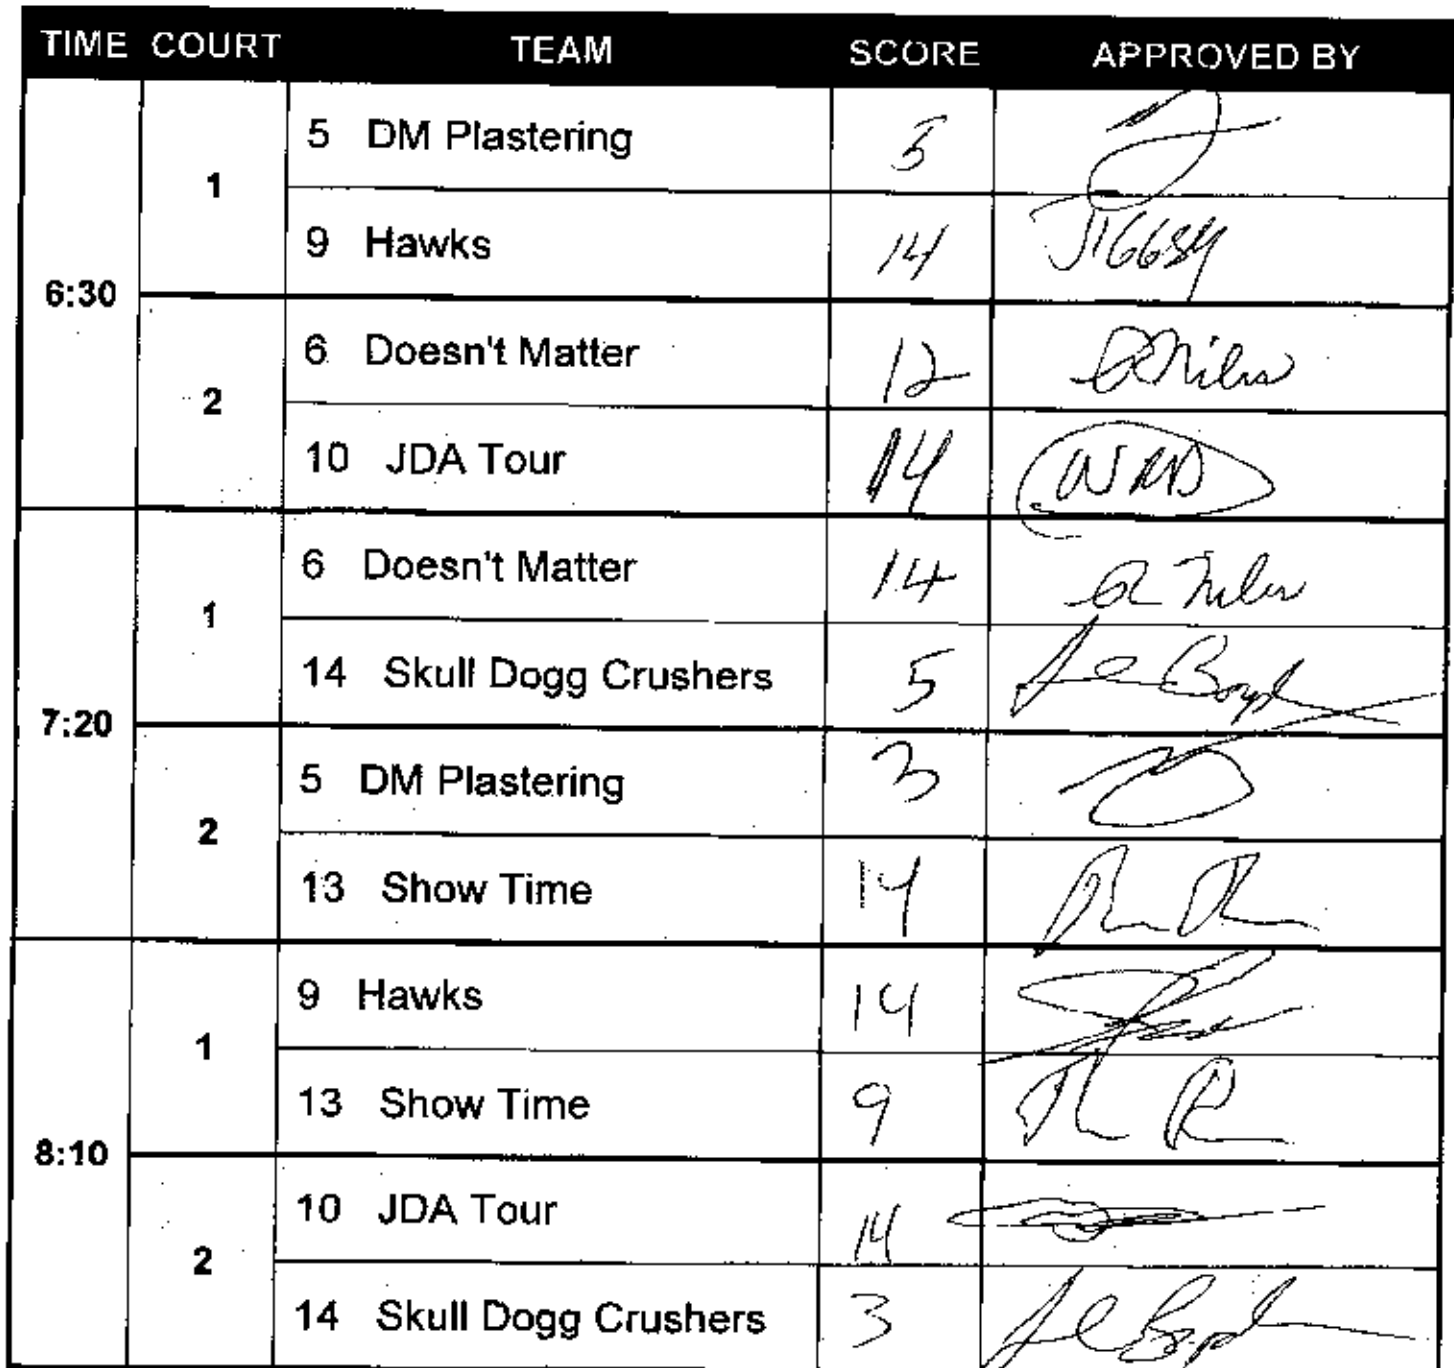 TIME COURT TEAM SCORE APPROVED BY
6:30
1
5 DM Plastering
9 Hawks 14 JIGGSY
2
6 Doesn't Matter 12 A Niles
10 JDA Tour 14
7:20
1
6 Doesn't Matter 14 A Niles
14 Skull Dogg Crushers 5
2
5 DM Plastering 3
13 Show Time 14
8:10
1
9 Hawks 14
13 Show Time 9
2
10 JDA Tour 14
14 Skull Dogg Crushers 3